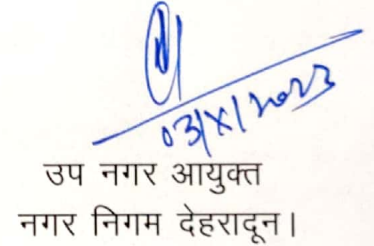 03/X/2023
उप नगर आयुक्त
नगर निगम देहरादून।